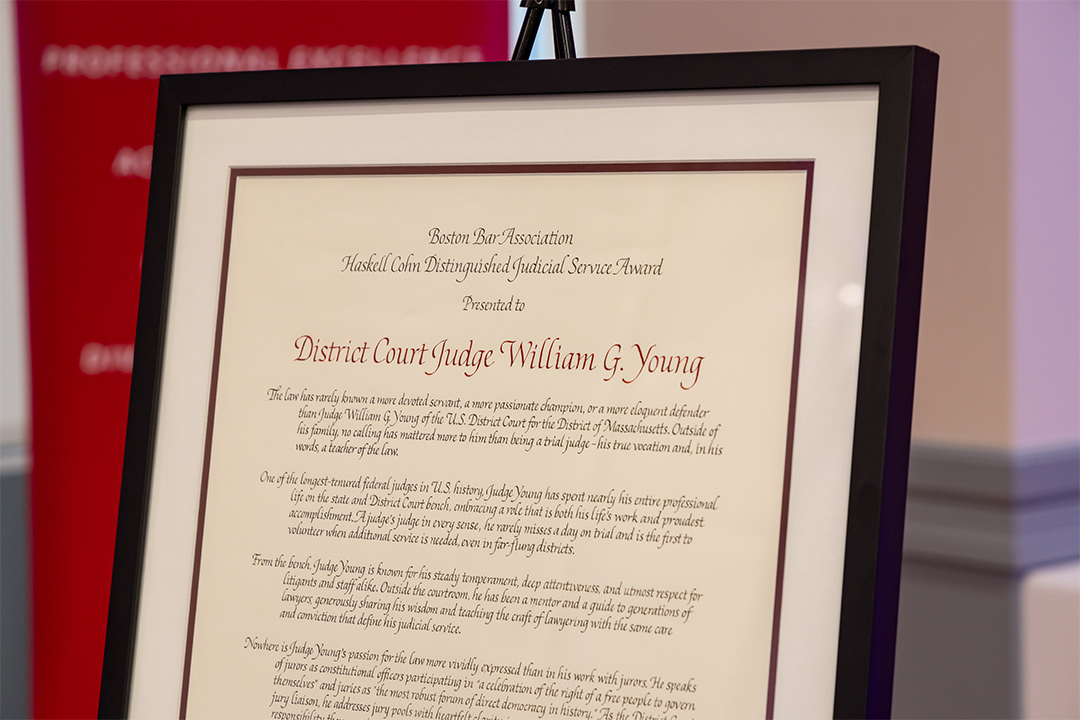 PROFESSIONAL EXCELLENCE
Boston Bar Association
Haskell Cohn Distinguished Judicial Service Award
Presented to
District Court Judge William G. Young
The law has rarely known a more devoted servant, a more passionate champion, or a more eloquent defender
than Judge William G. Young of the U.S. District Court for the District of Massachusetts. Outside of
his family, no calling has mattered more to him than being a trial judge – his true vocation and, in his
words, a teacher of the law.
One of the longest-tenured federal judges in U.S. history, Judge Young has spent nearly his entire professional
life on the state and District Court bench, embracing a role that is both his life's work and proudest
accomplishment. A judge's judge in every sense, he rarely misses a day on trial and is the first to
volunteer when additional service is needed, even in far-flung districts.
From the bench, Judge Young is known for his steady temperament, deep attentiveness, and utmost respect for
litigants and staff alike. Outside the courtroom, he has been a mentor and a guide to generations of
lawyers, generously sharing his wisdom and teaching the craft of lawyering with the same care
and conviction that define his judicial service.
Nowhere is Judge Young's passion for the law more vividly expressed than in his work with jurors. He speaks
of jurors as constitutional officers participating in "a celebration of the right of a free people to govern
themselves" and juries as "the most robust forum of direct democracy in history." As the District
jury liaison, he addresses jury pools with heartfelt
responsibility